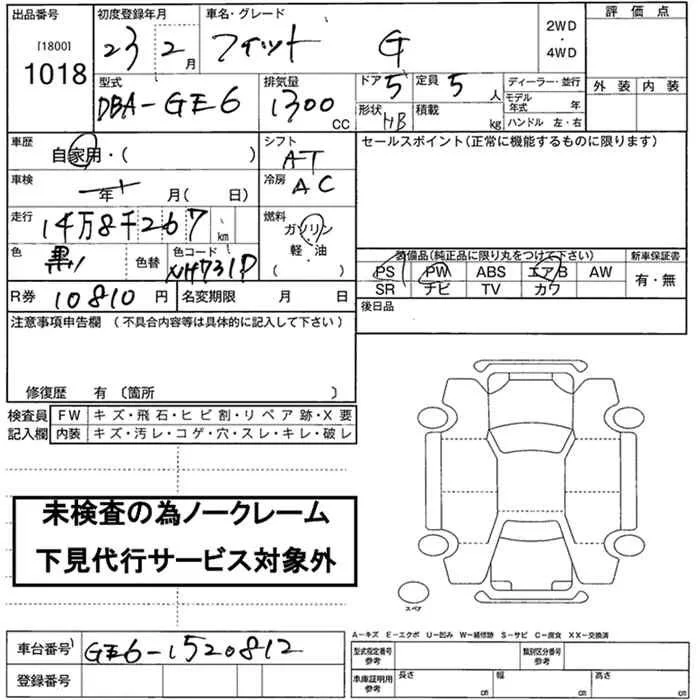 出品番号 初度登録年月 車名・グレード 評価点
[1800] 1018 23 2月 フィット G 2WD・4WD
型式 排気量 ドア 5 定員 5人 ディーラー・並行 外装 内装
DBA-GE6 1300CC 形状 HB 積載 kg モデル年式 年
ハンドル 左・右
車歴 自家用・( ) シフト AT セールスポイント(正常に機能するものに限ります)
車検 年 月( 日) 冷房 AC
走行 14万8千267km 燃料 ガソリン
軽・油
( )
色 黒 色替 色コード NH731P
装備品(純正品に限り丸をつけて下さい) 新車保証書
PS PW ABS エアB AW 有・無
SR ナビ TV カワ
R券 10810円 名変期限 月 日 後日品
注意事項申告欄(不具合内容等は具体的に記入して下さい)
修復歴 有〔箇所 〕
検査員 FW キズ・飛石・ヒビ割・リペア跡・X要
記入欄 内装 キズ・汚レ・コゲ・穴・スレ・キレ・破レ
未検査の為ノークレーム
下見代行サービス対象外
スペア
A-キズ E-エクボ U-凹み W-補修跡 S-サビ C-腐食 XX-交換済
車台番号 GE6-1520812 型式指定番号 参考 類別区分番号 参考
登録番号 車庫証明用 参考 長さ cm 幅 cm 高さ cm